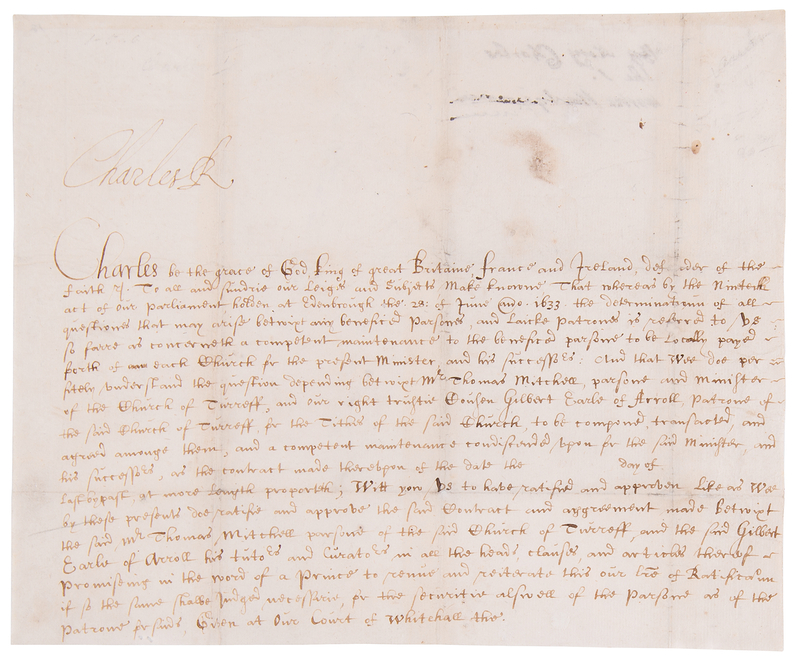 Charles R
Charles be the grace of God, King of great Britaine, france and Ireland, defender of the
faith &. To all and sundrie our Leigis and Subjets Make knowne That whereas by the Nineteth
act of our Parliament holden at Edenbrough the 28: of June 1633 the determinatiun of all
questiones that may arise betwixt any beneficed Parsones, and Laicke Patrones is referred to Us
so farre as concerneth a competent maintenance to the beneficed parsone to be Localy payed
forth of each Church for the present Minister, and his successors: And that Wee doe per
fitely understand the question depending betwixt Mr Thomas Mitchell, parsone and Minister
of the Church of Turreff, and our right trustie Cousen Gilbert Earle of Arroll, Patrone of
the said Church of Turreff, for the Tithes of the said Church, to be componed, transacted, and
agreed amongs them, and a competent maintenance condiscended upon for the said Minister, and
his successors, as the contract made thereupon of the date the day of
last bypast, at more length proporteth; Witt you Us to have ratified and approven Like as Wee
by these presents doe ratifie and approve the said Contract and aggreement made betwixt
the said Mr Thomas Mitchell parsone of the said Church of Turreff, and the said Gilbert
Earle of Arroll his tutors and Curators in all the heads, clauses, and articles thereof
Promising in the word of a Prince to renue and reiterate this our Lre of Ratificatiun
if so the same shalbe Judged necesserie, for the securitie alswell of the Parsone as of the
Patrone forsaid, Given at Our Court of Whitehall the.